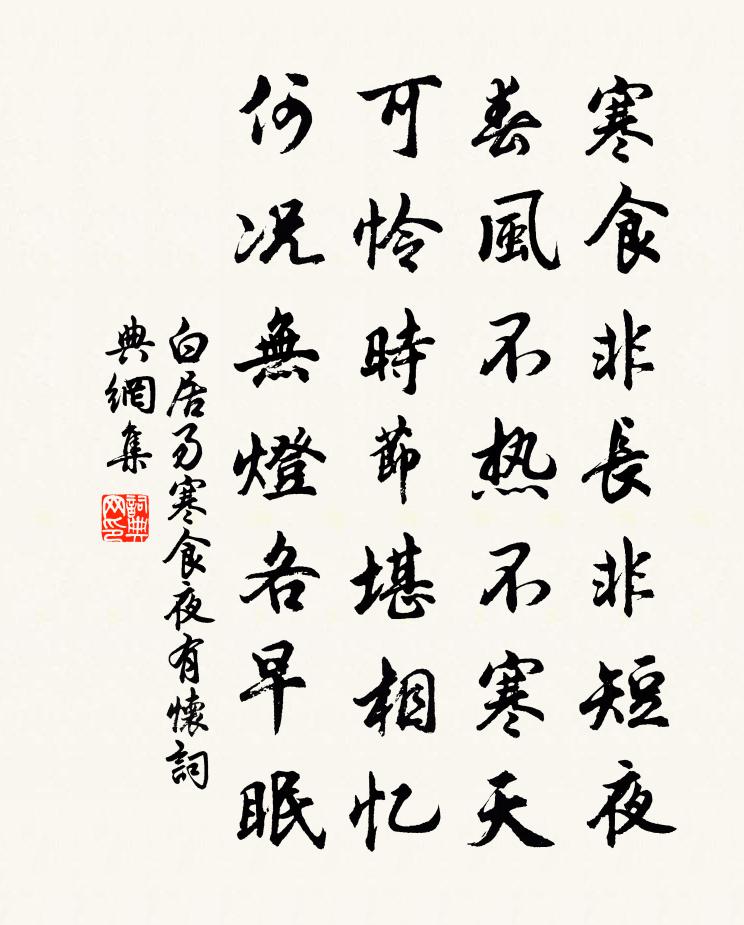 寒食非長非短夜
春風不热不寒天
可怜時節堪相忆
何况無燈各早眠
白居易寒食夜有懷詞
典網集
詞典网印